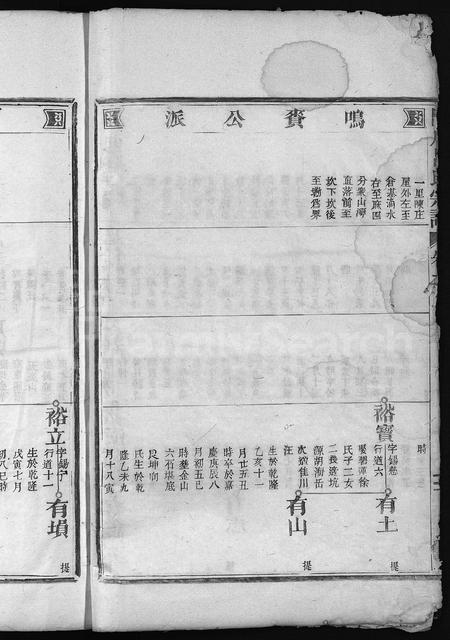 鳴賚公派
一里陳庄
屋外左至
倉基滴水
右至麻園
分衆山灣
直落前至
坎下坎後
至𡶶爲界
時
裕寳
字錫懋
行道六
娶劉譚女
氏子二女
二長適坑
源胡洵岳
次適佳川
汪
生於乾隆
乙亥十一
月廿五丑
時卒於嘉
慶庚辰八
月初五巳
時塟金山
六石堪底
艮坤向
氏生於乾
隆乙未九
月十八寅
有土
提
有山
提
裕立
字錫予
行道十一
生於乾隆
戊寅七月
初八巳時
有塤
提
FamilySearch